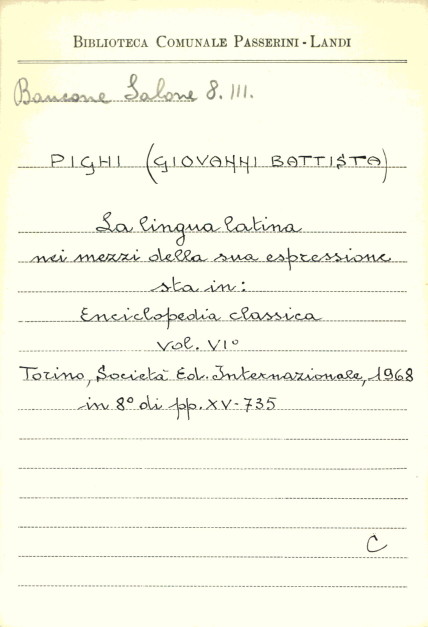 BIBLIOTECA COMUNALE PASSERINI - LANDI
Bancone Salone 8. III.
PIGHI (GIOVANNI BATTISTA)
La lingua latina
nei mezzi della sua espressione
sta in:
Enciclopedia classica
vol. VI°
Torino, Società Ed. Internazionale, 1968
in 8° di pp. XV-735
C